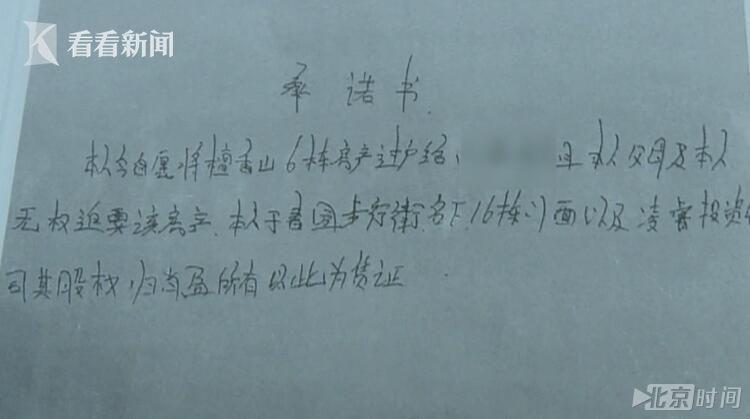 看看新闻
承诺书
本人自愿将檀香山6栋房产过户给 且本人父母及本人
无权追要该房产.本人于香国步行街名下16栋门面以及凌睿投资
司其股权,归 所有以此为凭证.
北京时间